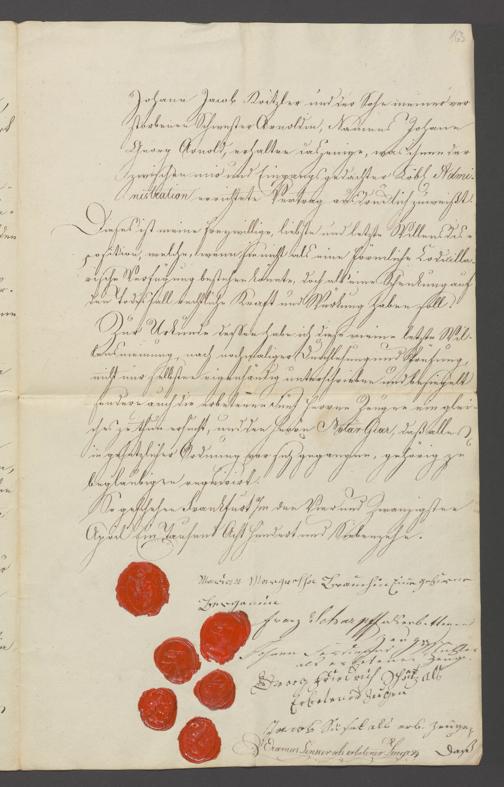 163
Johann Jacob Kritzler und der Sohn meiner ver-
storbenen Schwester Arnoldin, Namens Johann
Georg Arnold, erhalten dasjenige, was ihnen der
zwischen mir und Eingangs gedachter Löbl. Admi-
nistration errichtete Vertrag ausdrücklich zuweißt.
Dieses ist meine freywillige, liebste und letzte Willens Dis-
position, welche, wenn sie nicht als eine förmliche Codicilla-
rische Verfügung bestehen könnte, doch als eine Schenkung auf
den Todesfall rechtliche Kraft und Wirkung haben soll.
Zur Urkunde dessen habe ich diese meine letzte Wil-
lensmeinung, nach nochmaliger Durchlesung und Prüfung,
nicht nur selbsten eigenhändig unterschrieben und besiegelt
sondern auch die erbetenen fünf Herrn Zeugen ein glei-
ches zu thun ersucht, und den Herrn Notar daß alles
in gesetzlicher Ordnung vor sich gegangen, gehörig zu
beglaubigen requirirt.
So geschehen Frankfurt /m den Vier und Zwanzigsten
April Ein Tausend Acht Hundert und Siebenzehn.
Maria Margretha gebohrne
Franz Scharpff als erbettener
Zeuge
Johann Ferdinand
als erbetener Zeug
Georg Friedrich als
Erbetener Zeugen
Jacob als erb. Zeuge
als erbetener Zeuge
Daß